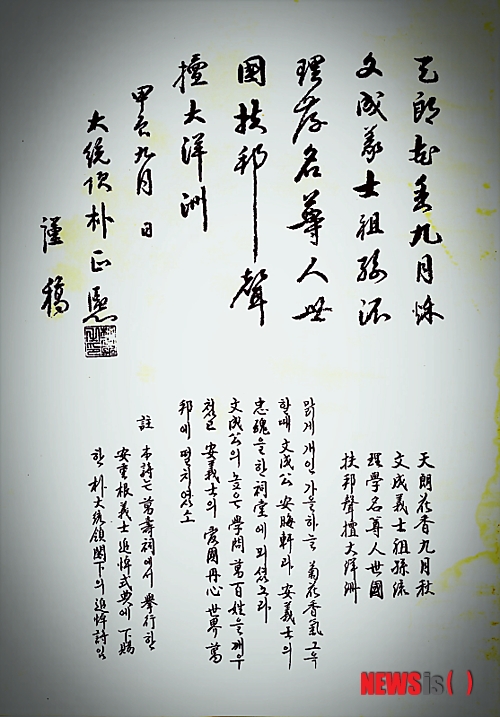 天朗花香九月秋
文成義士祖孫流
理學名尊人世
國扶邦聲
擅大洋洲
甲辰九月 日
大統領 朴正熙
謹稿
天朗花香九月秋
文成義士祖孫流
理學名尊人世國
扶邦聲擅大洋洲
맑게 개인 가을하늘 菊花香氣 그윽
할때 文成公 安晦軒과 安義士의
忠魂을 한 祠堂에 뫼셨노라
文成公의 높은 學問 萬百姓을 깨우
쳤고 安義士의 愛國丹心 世界 萬
邦에 떨치었소
註 本詩는 萬壽祠에서 擧行한
安重根義士 追悼式典에 下賜
한 朴大統領閣下의 追悼詩임
NEWSis( )